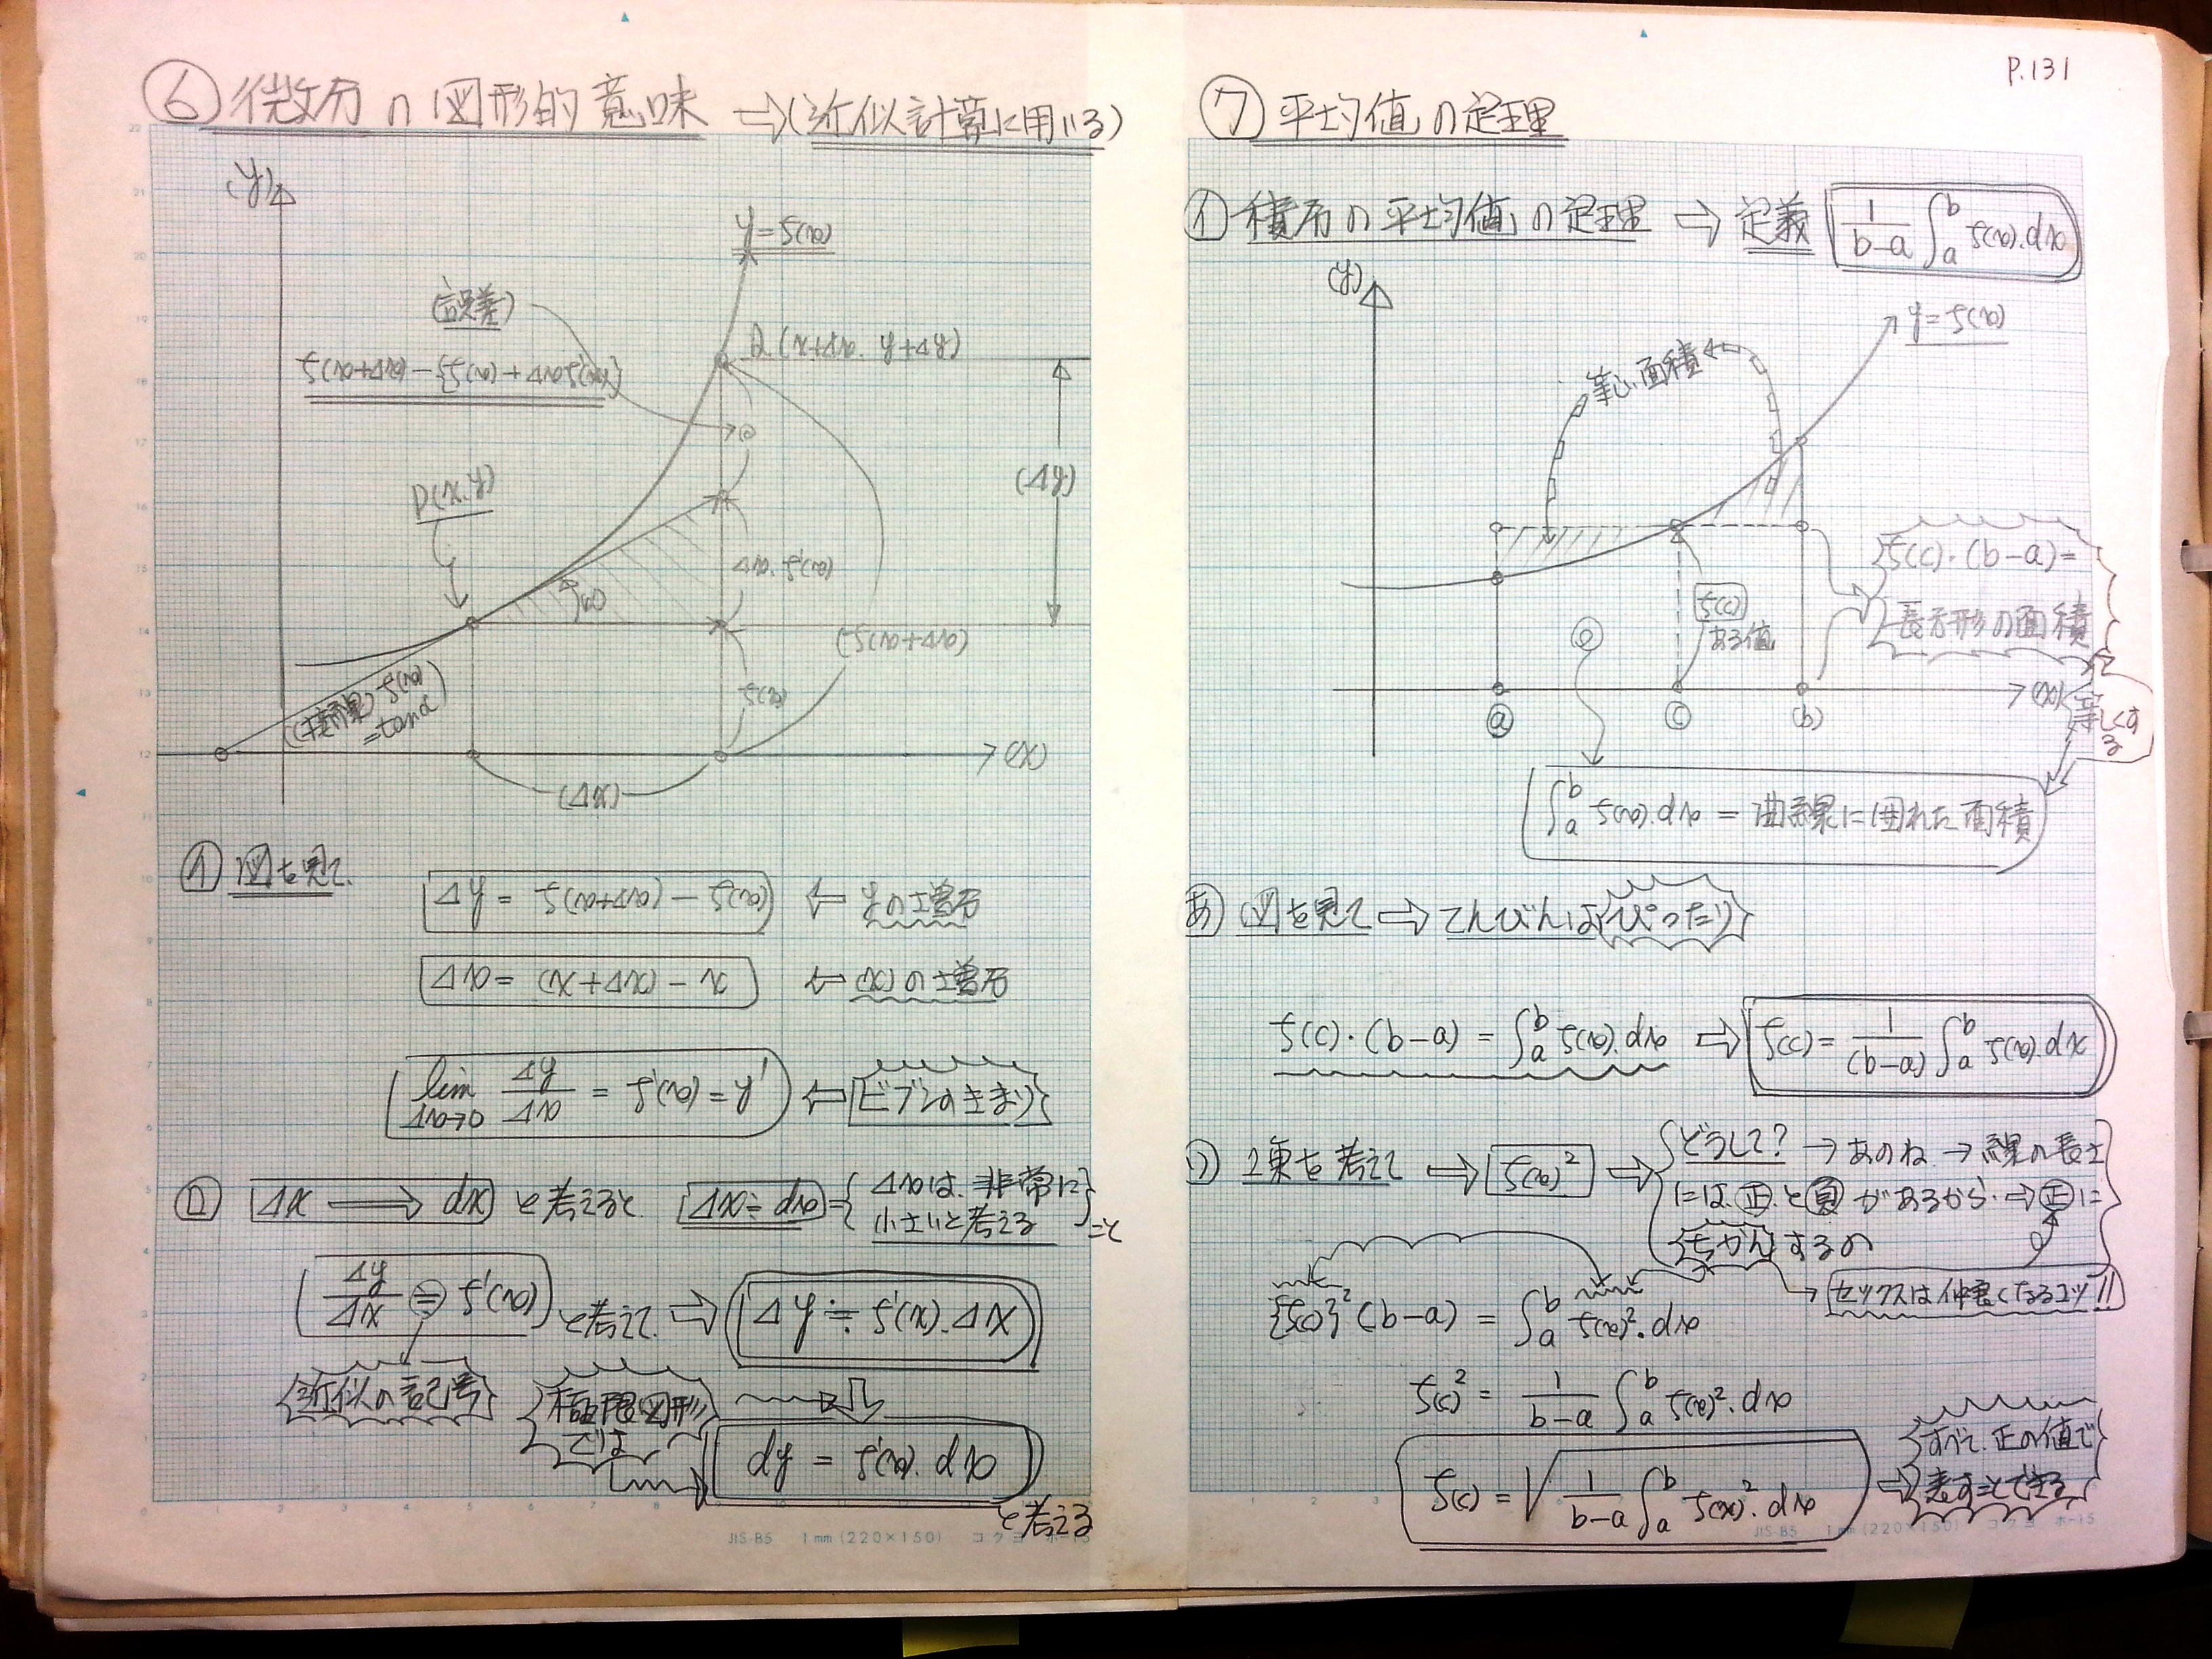 ⑥ 微分の図形的意味 ⇒(近似計算に用いる)
(y)
y=f(x)
(誤差)
f(x+Δx)-{f(x)+Δxf'(x)}
Q(x+Δx. y+Δy)
(Δy)
P(x.y)
Δx.f'(x)
f(x+Δx)
f(x)
(接線) f'(x)
=tanα
(x)
(Δx)
㋑ 図を見て.
Δy = f(x+Δx) - f(x) ⇐ yの増分
Δx = (x+Δx) - x ⇐ (x)の増分
lim Δx→0 Δy/Δx = f'(x) = y' ⇐ ビブンのきまり
㋺ Δx ⟶ dx と考えると Δx≒dx = {Δxは.非常に
小さいと考える}こと
Δy/Δx ≒ f'(x) と考えて. ⇒ Δy ≒ f'(x).Δx
近似の記号
極限図形
では
dy = f'(x).dx
と考える
JIS-B5 1mm(220×150) コクヨ ホ-15
P.131
⑦ 平均値の定理
㋑ 積分の平均値の定理 ⇒ 定義 1/(b-a) ∫_a^b f(x).dx
(y)
y=f(x)
等しい面積
f(c)・(b-a)=
長方形の面積
f(c)
ある値
ⓐ ⓒ (b)
(x)
等しくす
る
∫_a^b f(x).dx = 曲線に囲れた面積
あ) 図を見て ⇒ てんびんはぴったり
f(c)・(b-a) = ∫_a^b f(x).dx ⇒ f(c) = 1/(b-a) ∫_a^b f(x).dx
2乗を考えて ⇒ f(x)² ⇒ どうして? → あのね → 線の長さ
には.㊣と負があるから. ⇒ ㊣に
ちかんするの
セックスは仲良くなるコツ!!
{f(c)}²(b-a) = ∫_a^b f(x)².dx
f(c)² = 1/(b-a) ∫_a^b f(x)².dx
f(c) = √(1/(b-a) ∫_a^b f(x)².dx)
すべて.正の値で
表すことできる
JIS-B5 1mm(220×150) コクヨ ホ-15